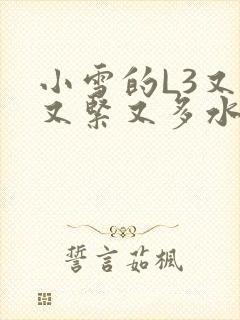 小雪的L3又
又紧又多水
誓言茹楓